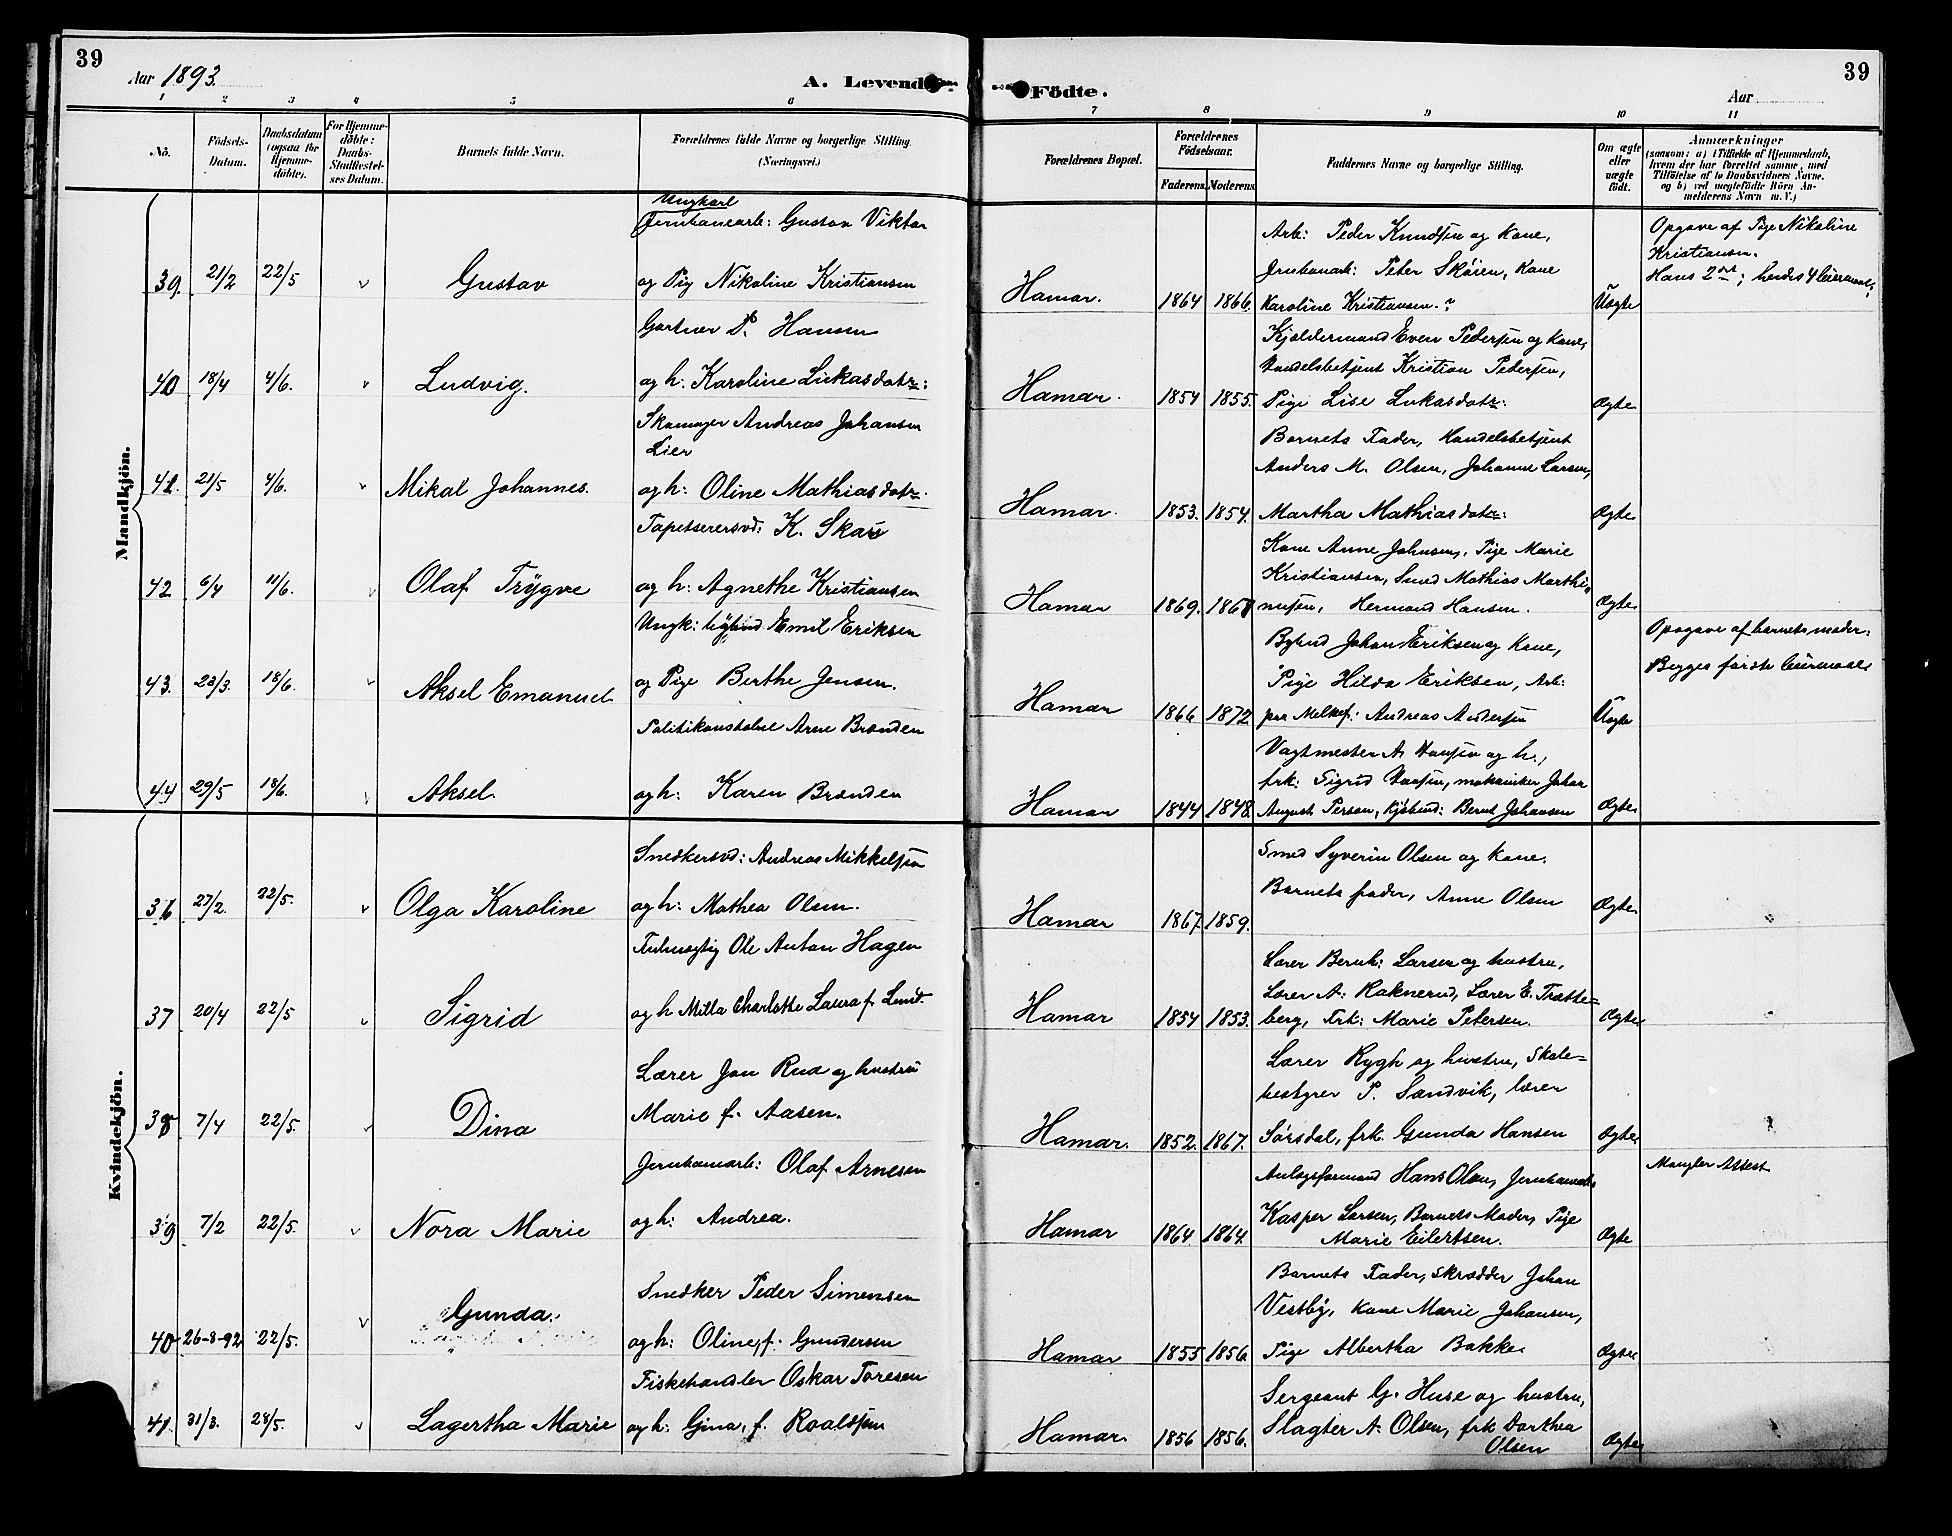 39
Aar 1893.
A. Levende
1 2 3 4 5 6
Nô.
Födsels-Datum.
Daabsdatum (ogsaa for Hjemme-döbte).
For Hjemme-döbte: Daabs-Stadfæstel-ses Datum.
Barnets fulde Navn.
Forældrenes fulde Navne og borgerlige Stilling. (Næringsvei.)
Mandkjön.
Ungkarl
Jernbanearb: Gustav Viktor
39. 21/2 22/5 v Gustav og Pig Nikoline Kristiansen
Gartner P. Hansen
40 18/4 4/6. v Ludvig. og h: Karoline Lukasdatr:
Skomager Andreas Johansen
Lier
41. 21/5 4/6. v Mikal Johannes. og h: Oline Mathiasdatr.
Tapetserersvd: K. Skau
42 6/4 11/6. v Olaf Trygve og h: Agnethe Kristiansen
Ungk: Emil Eriksen
43. 23/3. 18/6. v Aksel Emanuel og Pige Berthe Jensen.
Politikonstabel Arne Brænden
44 29/5 18/6. v Aksel. og h: Karen Brænden
Kvindekjön.
Snedkersvd: Andreas Mikkelsen
36 27/2. 22/5. v Olga Karoline og h: Mathea Olsen.
Fuldmægtig Ole Anton Hagen
37 20/4 22/5 v Sigrid og h Milla Charlotte Laura f. Lund.
Lærer Jon Rud og hustru
38 7/4 22/5. v Dina Marie f. Aasen.
Jernbanearb: Olaf Arnesen
39 7/2 22/5. v Nora Marie og h: Andrea.
Snedker Peder Simensen
40 26-8-92 22/5. v Gunda. og h: Oline, f. Gundersen
Fiskehandler Oskar Toresen
41. 31/3. 28/5. v Lagertha Marie og h: Gina, f. Roaldsen
39
Födte.
Aar
7 8 9 10 11
Forældrenes Bopæl.
Forældrenes Födselsaar.
Faderens. Moderens.
Faddernes Navne og borgerlige Stilling.
Om ægte eller uægte födt.
Anmærkninger
(saasom: a) i Tilfælde af Hjemmedaab, hvem der har forrettet samme, med Tilföielse af to Daabsvidners Navne. og b) ved uægtefödte Börn An-melderens Navn m. V.)
Arb: Peder Knudsen og Kone,
Jernbanarb: Peter Sköien, Kone
Hamar. 1864 1866. Karoline Kristiansen.? Uægte
Opgave af Pige Nikoline
Kristiansen.
Hans 2det; hendes 4 leiermaal;
Kjældermand Even Pedersen og Kone,
Handelsbetjent Kristian Pedersen,
Hamar. 1854 1855. Pige Lise Lukasdatr: Ægte
Barnets Fader, Handelsbetjent
Anders M. Olsen, Johanne Larsen,
Hamar. 1853. 1854. Martha Mathiasdatr: Ægte
Kone Anne Johnsen, Pige Marie
Kristiansen, Smed Mathias Marthi-
Hamar 1869. 1868 nusen, Hermand Hansen. Ægte
Bybud Johan Eriksen og Kone,
Pige Hilda Eriksen, Arb:
Hamar 1866 1872 paa Melkef: Andreas Andersen Uægte
Opogave af barnets moder.
Begges første leiermaal
Vagtmester A. Hansen og h.,
frk: Sigrid Hansen, mekaniker Johan
Hamar 1844 1848. August Person, Kjöbmd: Bernt Johansen Ægte
Smed Syverin Olsen og Kone.
Hamar 1867. 1859. Barnets fader, Anne Olsen Ægte
Lærer Bernh: Larsen og hustru,
Lærer A: Raknerud, Lærer E. Trætte-
Hamar 1854 1853. berg, Frk: Marie Petersen. Ægte
Lærer Rygh og hustru, Skole-
bestyrer P. Sandvik, lærer
Hamar. 1852. 1867. Sörsdal, frk. Gunda Hansen Ægte
Anlægsformand Hans Olsen, Jernbanearb.
Kasper Larsen, Barnets Moder, Pige
Hamar 1864 1864. Marie Eilertsen. Ægte
Mangler Attest
Barnets Fader, Skrædder Johan
Vestby, Kone Marie Johansen,
Hamar 1855 1856 Pige Albertha Bakke Ægte
Sergeant G. Huse og hustru,
Slagter A. Olsen, frk Dorthea
Hamar 1856 1856. Olsen Ægte